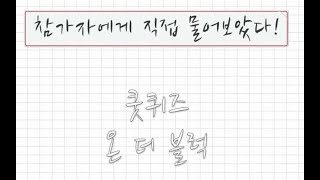 참가자에게 직접 물어보았다!
쿳퀴즈
온 더 블럭